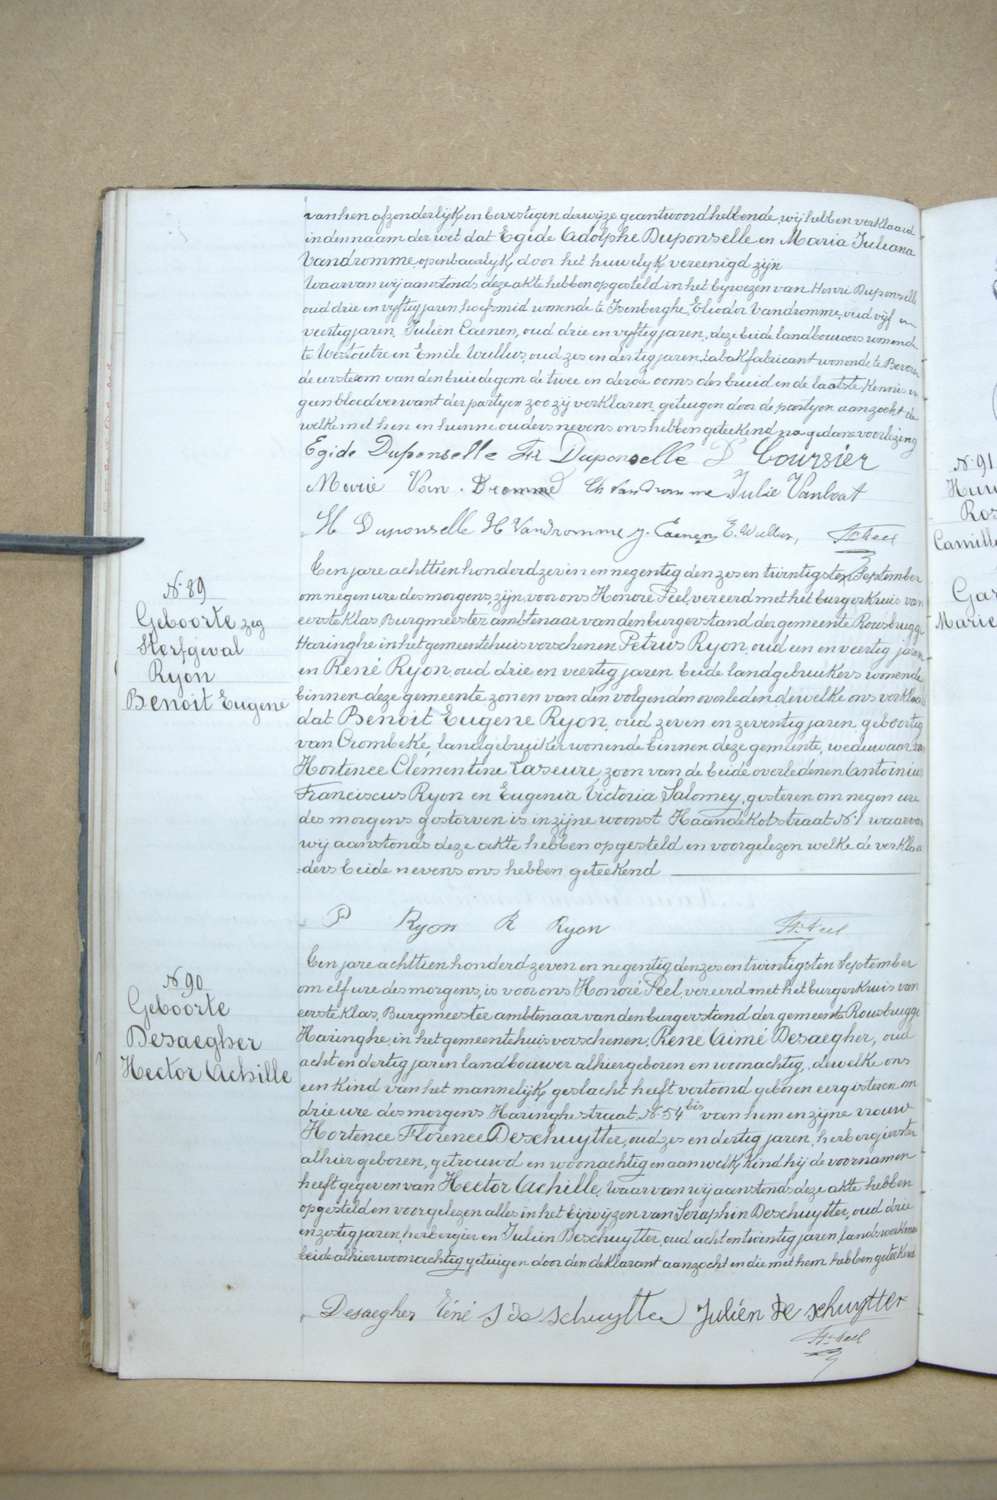 van hen afzonderlijk en bevestigen derwijze geantwoord hebbende, wij hebben verklaard
in den naam der wet dat Egide Adolphe Duponselle en Maria Juliana
Vandromme, openbaarlijk door het huwelijk vereenigd zijn
Waarvan wij aanstonds deze akte hebben opgesteld in het bijwezen van Henri Duponselle
oud drie en vijftig jaren hoefsmid wonende te Isenberghe, Eliodor Vandromme, oud vijf en
veertig jaren, Julien Caenen, oud drie en vijftig jaren, deze beide landbouwers wonende
te Westoutre en Emile Wullus, oud zes en dertig jaren, tabakfabricant wonende te Beveren
de eerste oom van den bruidegom de twee en derde ooms der bruid en de laatste kennis en
geen bloedverwant der partijen zoo zij verklaren, getuigen door de partijen aanzocht de
welke met hen en hunne ouders nevens ons hebben geteekend na gedane voorlezing
Egide Duponselle Fk Duponselle D Coursier
Marie Van Dromme Ch Vandromme Julie Vanbaat
H Duponselle H Vandromme J. Caenen E. Wullus, Hre Feel
N. 89
Geboorte zeg
Sterfgeval
Ryon
Benoit Eugene
Een jare achttien honderd zeven en negentig den zes en twintigsten September
om negen ure des morgens, zijn voor ons Honoré Feel, vereerd met het burgerkruis van
eerste klas, Burgmeester, ambtenaar van den burgerstand der gemeente Rousbrugge
Haringhe in het gemeentehuis verschenen Petrus Ryon, oud een en veertig jaren
en René Ryon, oud drie en veertig jaren beide landgebruikers wonende
binnen deze gemeente zonen van den volgenden overleden dewelke ons verklaa
dat Benoit Eugene Ryon, oud zeven en zeventig jaren geboortig
van Crombeke, landgebruiker wonende binnen deze gemeente, weduwaar van
Hortence Clémentine Laseure, zoon van de beide overledenen Antoinius
Franciscus Ryon en Eugenia Victoria Salomey, gisteren om negen ure
des morgens gestorven is in zijne woonst Haandekotstraat N. 1 waarvan
wij aanstonds deze akte hebben opgesteld en voorgelezen welke de verklaa
ders beide nevens ons hebben geteekend
P Ryon R Ryon Hre Feel
N. 90
Geboorte
Desaegher
Hector Achille
Een jare achttien honderd zeven en negentig den zes en twintigsten September
om elf ure des morgens, is voor ons Honoré Feel, vereerd met het burgerkruis van
eerste klas, Burgmeester ambtenaar van den burgerstand der gemeente Rousbrugge
Haringhe, in het gemeentehuis verschenen, René Aimé Desaegher, oud
acht en dertig jaren landbouwer alhier geboren en woonachtig, dewelke ons
een kind van het mannelijk geslacht heeft vertoond geboren eergisteren om
drie ure des morgens Haringhestraat, N. 54 bis van hem en zijne vrouw
Hortence Florence Deschuytter, oud zes en dertig jaren, herbergierster
alhier geboren, getrouwd en woonachtig en aan welk kind hij de voornamen
heeft gegeven van Hector Achille, waarvan wij aanstonds deze akte hebben
opgesteld en voorgelezen alles in het bijwijzen van Seraphin Deschuytter, oud drie
en zestig jaren, herbergier en Julien Deschuytter, oud acht en twintig jaren, landswerkman
beide alhier woonachtig getuigen door den deklarant aanzocht en die met hem hebben geteekend
Desaegher Réné S de schuytter Julién de schuytter
Hre Feel
N. 91
Camille
Marie